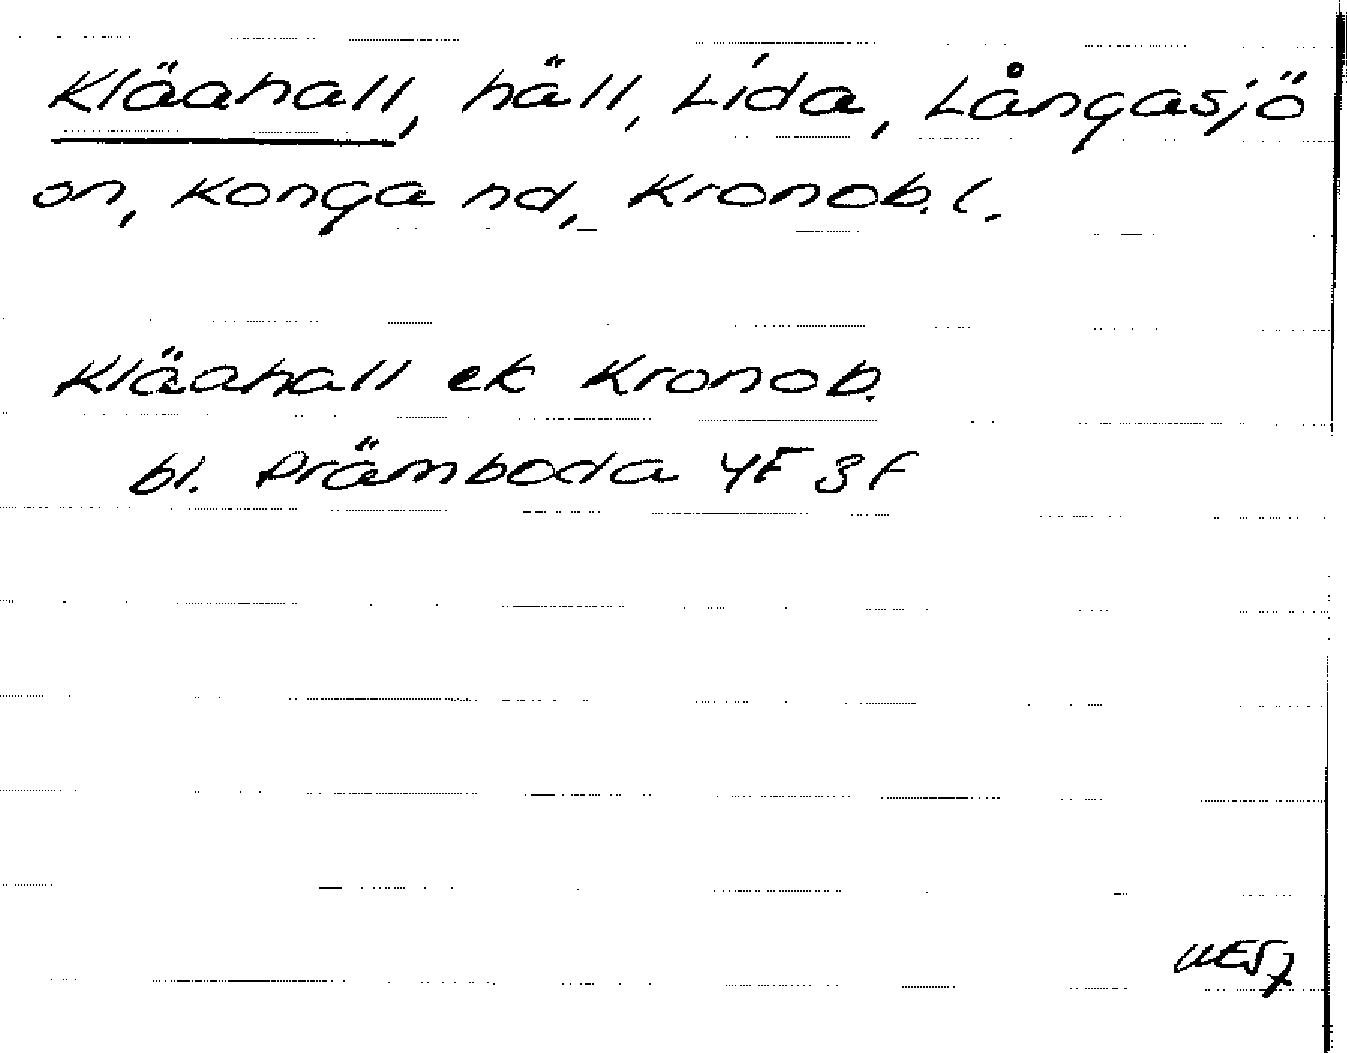 Kläahall, häll, Lida, Långasjö
sn, Konga hd, Kronob. l.
Kläahall ek Kronob.
bl. Prämboda 4F 3f